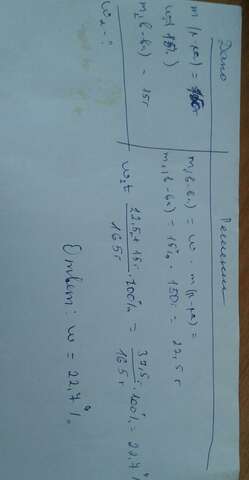 Дано
m (р-ра) = 150г
w₁ = 15%
m₂(в-ва) = 15г
w₂ - ?
Решение
m₁(в-ва) = w · m(р-ра) =
m₁(в-ва) = 15% · 150г = 22,5 г
w₂ = 22,5 + 15г / 165г · 100% = 37,5г / 165г · 100% = 22,7%
Ответ: w = 22,7%.